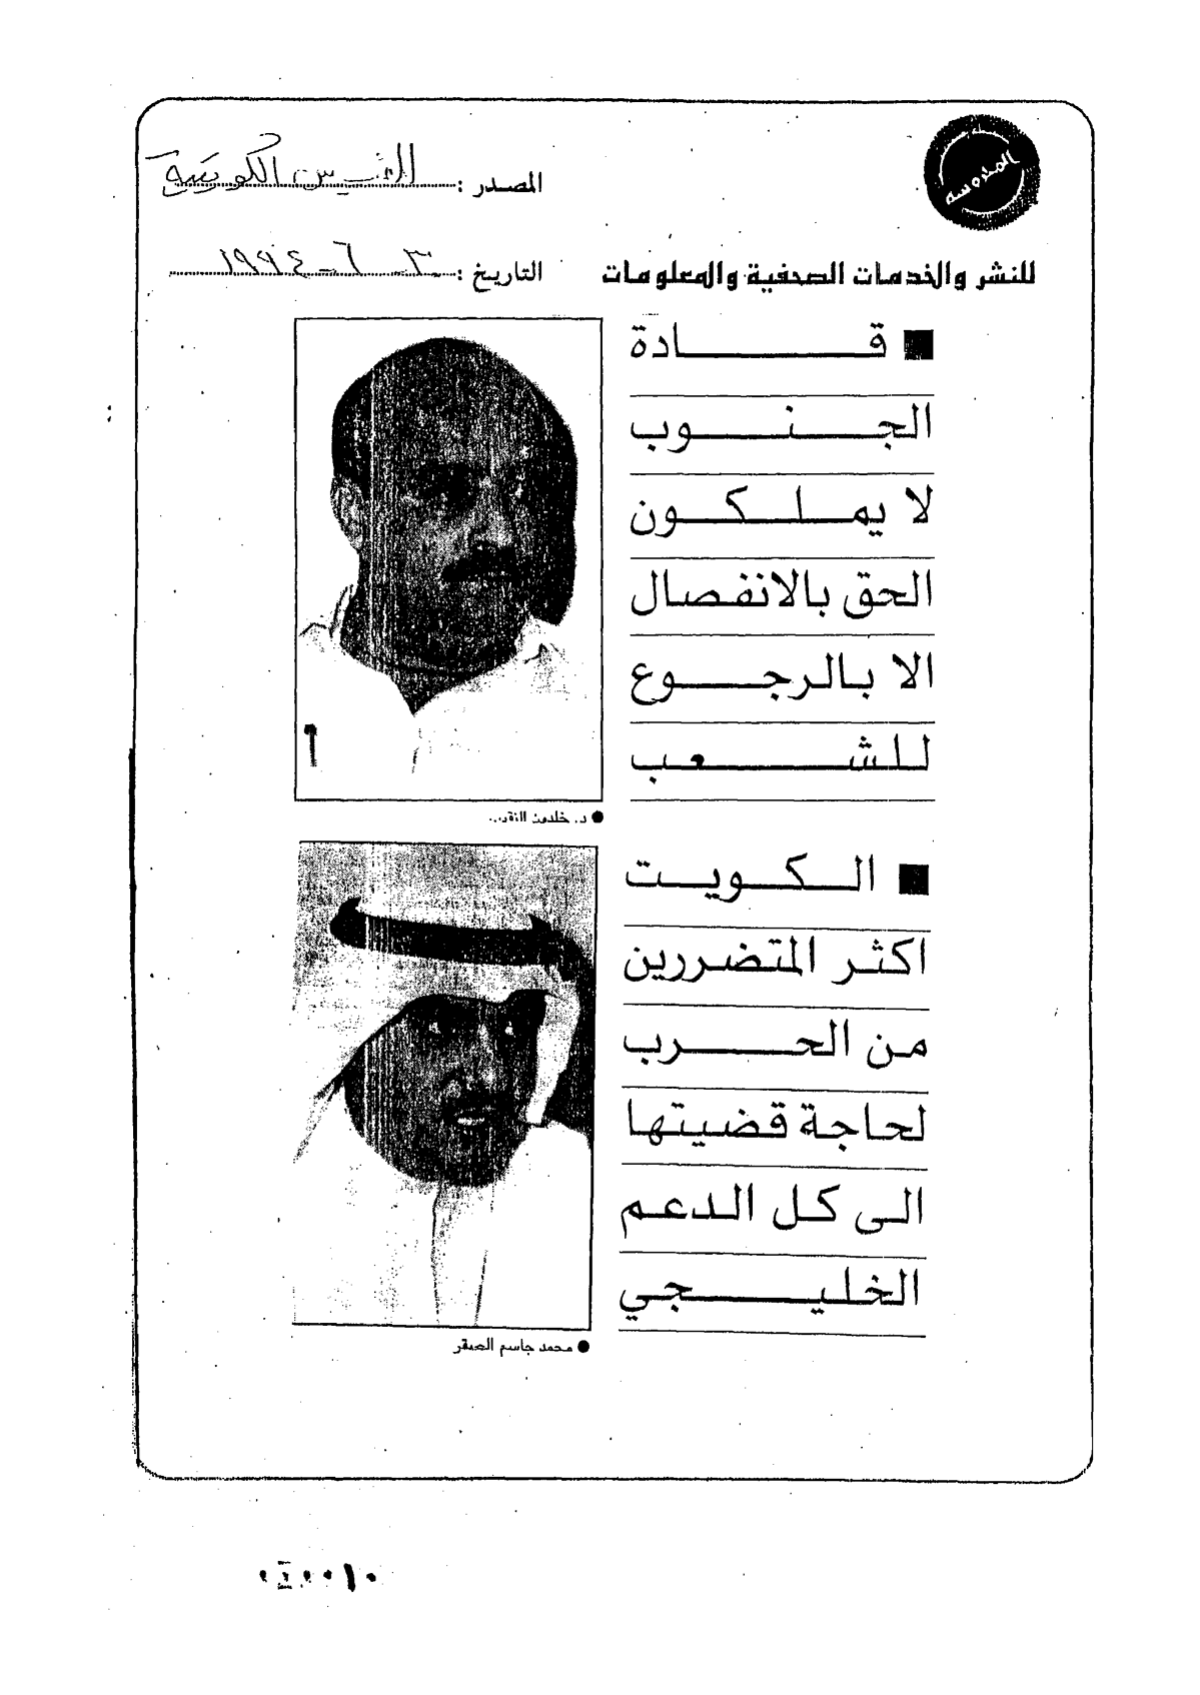 المصدر : القبس الكويتية
للنشر والخدمات الصحفية والمعلومات
التاريخ : ٣ - ٦ - ١٩٩٤
■ قادة
الجنوب
لا يملكون
الحق بالانفصال
الا بالرجوع
للشعب
● د. خلدون النقيب
■ الكويت
اكثر المتضررين
من الحرب
لحاجة قضيتها
الى كل الدعم
الخليجي
● محمد جاسم الصقر